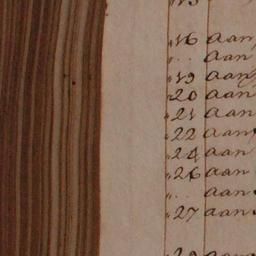 " 16 Aan
" .. Aan
" 19 Aan
" 20 Aan
" 21 Aan
" 22 Aan
" 24 Aan
" 26 Aan
" .. Aan
" 27 Aan